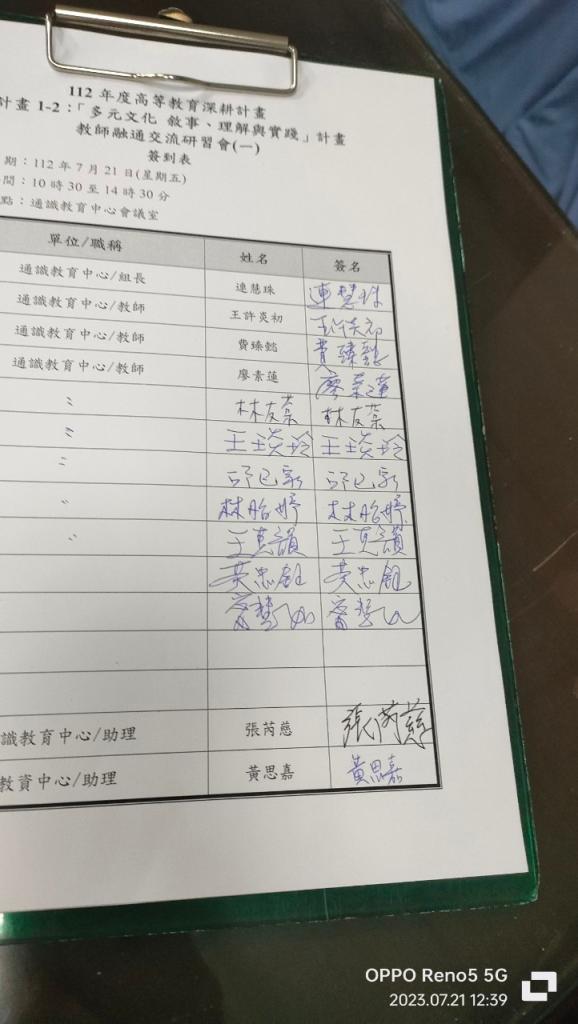 112 年度高等教育深耕計畫
計畫 1-2：「多元文化 敘事、理解與實踐」計畫
教師融通交流研習會(一)
簽到表
期：112 年 7 月 21 日(星期五)
間：10 時 30 至 14 時 30 分
點：通識教育中心會議室
單位/職稱 姓名 簽名
通識教育中心/組長 連慧珠 連慧珠
通識教育中心/教師 王許炎初 王許炎初
通識教育中心/教師 費臻懿 費臻懿
通識教育中心/教師 廖素蓮 廖素蓮
〃 林友棻 林友棻
〃 王琰玲 王琰玲
〃
〃 林貽婷 林貽婷
〃 王克韻 王克韻
黃忠鈺 黃忠鈺
識教育中心/助理 張芮慈 張芮慈
教資中心/助理 黃思嘉 黃思嘉
OPPO Reno5 5G
2023.07.21 12:39